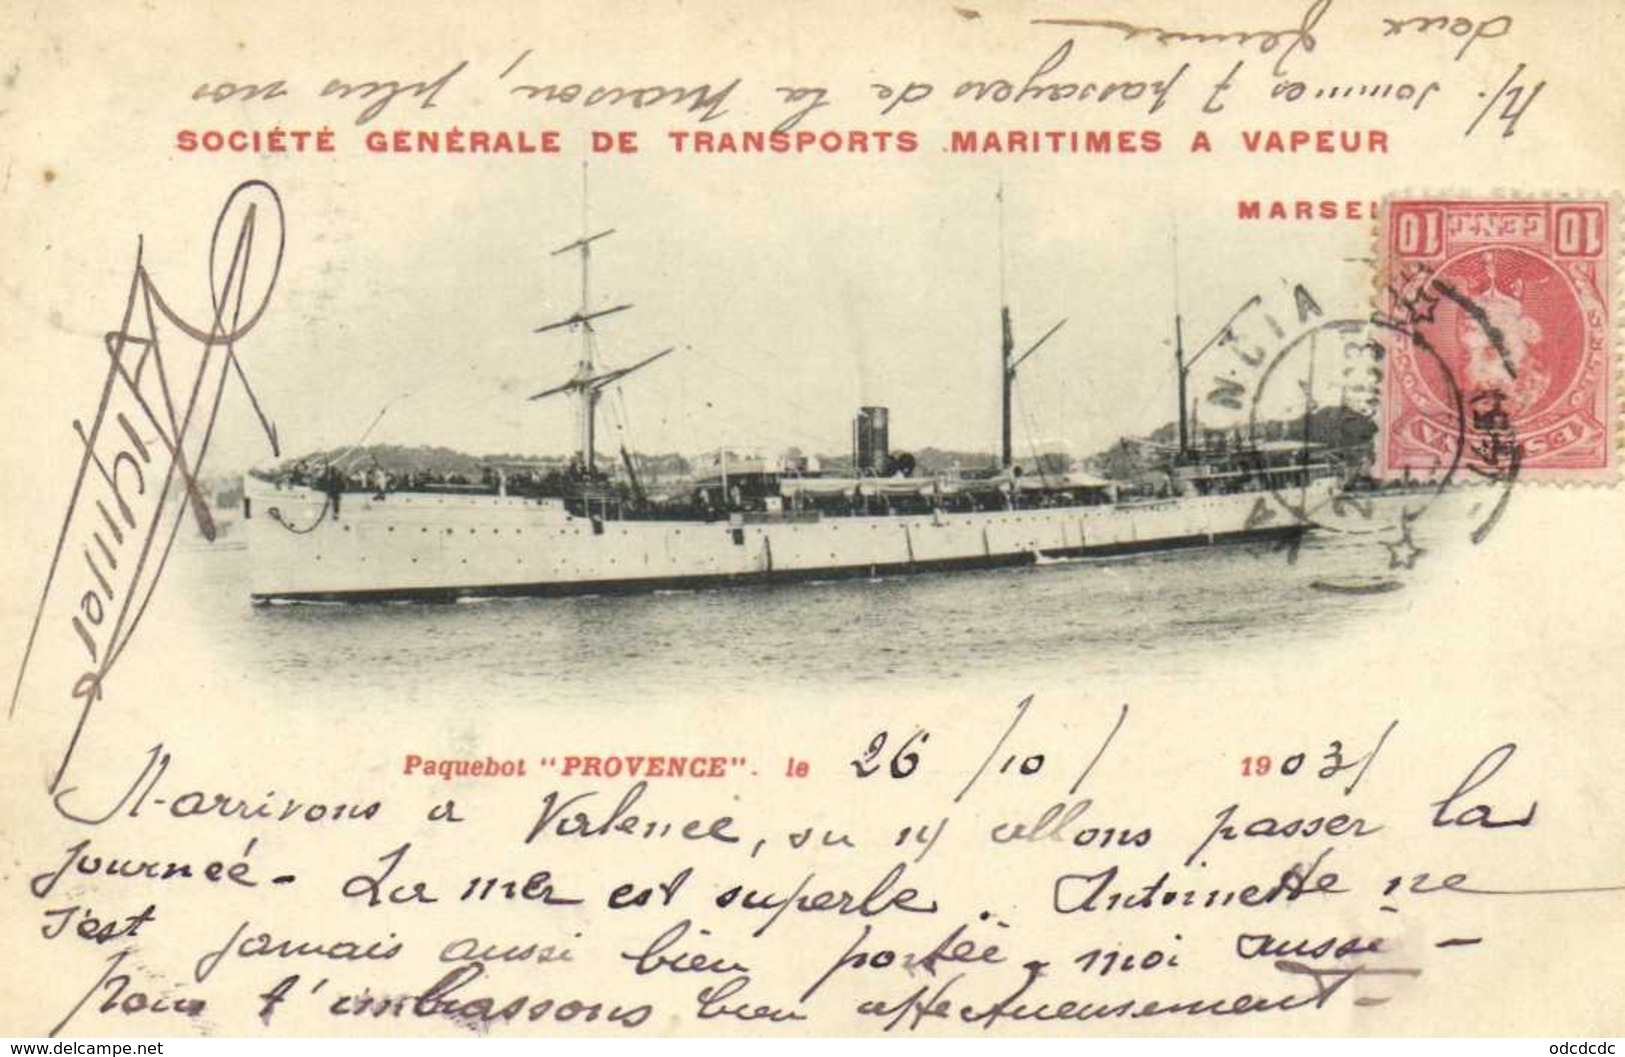 N/. sommes 7 passagers de la maison, plus nos
deux femmes
SOCIÉTÉ GENÉRALE DE TRANSPORTS MARITIMES A VAPEUR
MARSEI
10 CENT. 10
Paquebot "PROVENCE". le 26/10/ 1903/
N. arrivons a Valence, ou ns allons passer la
journeé - La mer est superbe. Antoinette ne
s'est jamais aussi bien porteé, moi aussi -
Nous t'embrassons bien affectueusement -
delcampe.net
odcdcdc